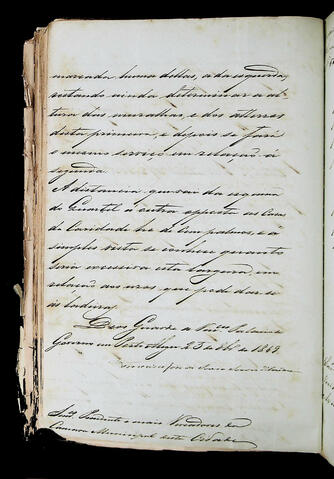 marcada huma dellas, a da esquerda,
restando ainda determinar a al-
tura das muralhas e dos aterros
desta primeira, e depois se fará
o mesmo serviço em relação á
segunda.
A distancia que vai da esquina
do Quartel á outra opposta as Casas
da Caridade he de cem palmos, e á
simples vista se conhece quanto
seria excessiva esta largura, em
relação aos usos que pode dar-se
ás
Deos Guarde a
Governo em Porto Alegre 23 de de 1849
Presidente e mais Vereadores da
Camara Municipal desta Cidade